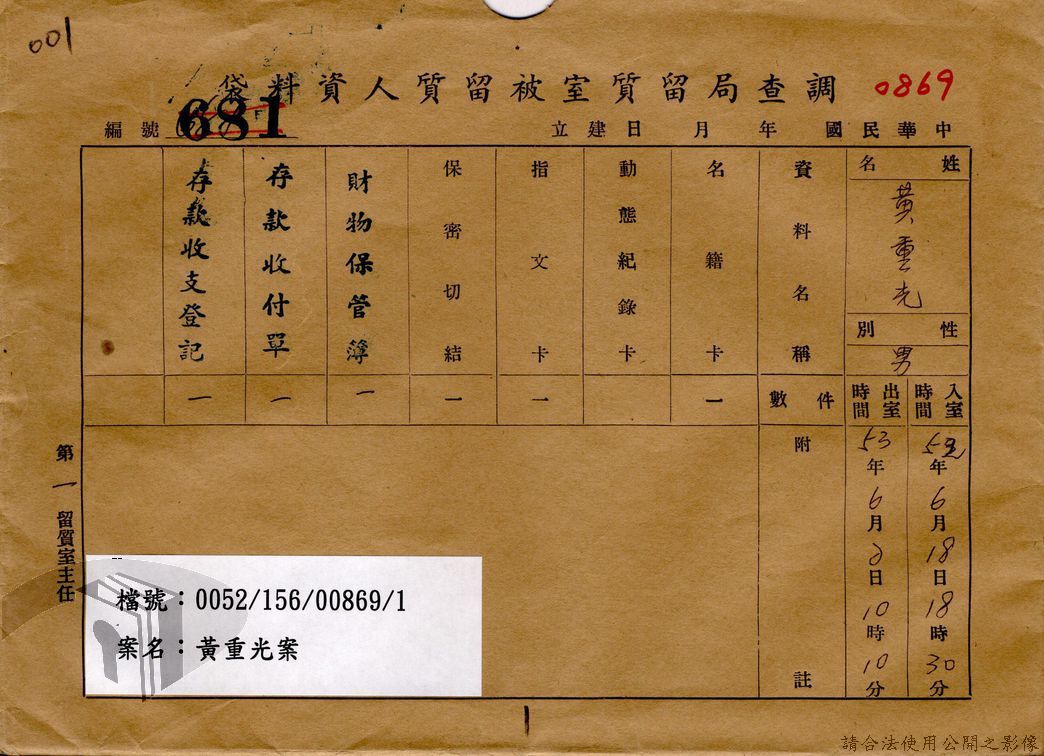 001
調查局留質室被留質人資料袋
0869
中華民國 年 月 日建立
編號 681
姓名
黃重光
性別
男
入室時間
52年6月18日18時30分
出室時間
53年6月2日10時10分
資料名稱
件數
附註
名籍卡
一
動態紀錄卡
指文卡
一
保密切結
一
財物保管簿
一
存款收付單
一
存款收支登記
一
第一留質室主任
檔號：0052/156/00869/1
案名：黃重光案
請合法使用公開之影像